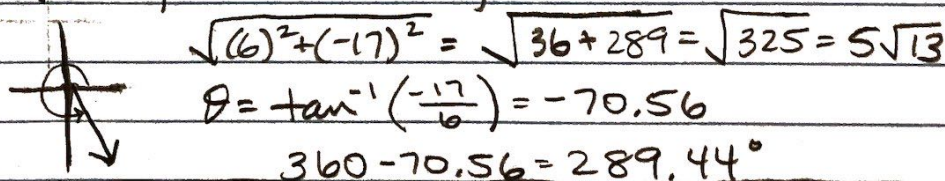 √(6)²+(-17)² = √36+289 = √325 = 5√13
θ = tan⁻¹(-17/6) = -70.56
360-70.56 = 289.44°